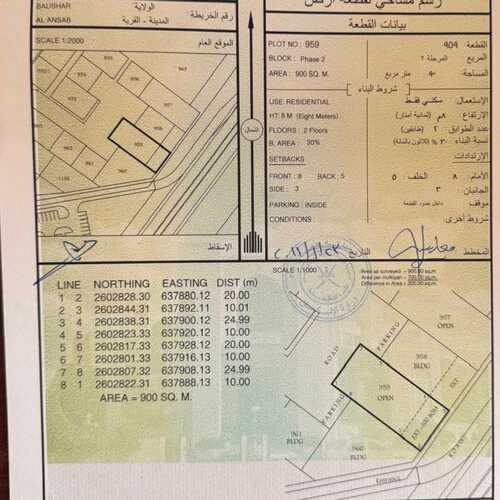 رسم مساحي لقطعة أرض
بيانات القطعة
BAUSHAR
الولاية
AL ANSAB
المدينة - القرية
رقم الخريطة
SCALE 1:2000
الموقع العام
PLOT NO : 959
القطعة: ٩٥٩
BLOCK : Phase 2
المربع
المرحلة ٢
AREA : 900 SQ. M.
المساحة
متر مربع
شروط البناء
USE: RESIDENTIAL
الإستعمال: سكني فقط
HT: 8 M (Eight Meters)
الإرتفاع ٨م (ثمانية أمتار)
FLOORS : 2 Floors
عدد الطوابق ٢ (طابقين)
B. AREA : 30%
نسبة البناء ٣٠
SETBACKS
الإرتدادات
FRONT : 8 BACK : 5
الأمام ٨ الخلف ٥
SIDE : 3
الجانبان ٣
PARKING : INSIDE
موقف داخل حدود القطعة
CONDITIONS :
شروط أخرى
المخطط
التاريخ
الإسقاط
شمال
959
958
957
960
LINE NORTHING EASTING DIST (m)
1 2 2602828.30 637880.12 20.00
2 3 2602844.31 637892.11 10.01
3 4 2602838.31 637900.12 24.99
4 5 2602823.33 637920.12 10.00
5 6 2602817.33 637928.12 20.00
6 7 2602801.33 637916.13 10.00
7 8 2602807.32 637908.13 24.99
8 1 2602822.31 637888.13 10.00
AREA = 900 SQ. M.
SCALE 1/1000
Area as surveyed = 900.00 sq.m.
Area per mulkiyah = 700.00 sq.m.
Difference in Area = 200.00 sq.m.
957
OPEN
PARKING
958
BLDG
ROAD
959
OPEN
EXT
EXT. =200 SQM
PARKING
961
BLDG
960
BLDG
ROAD